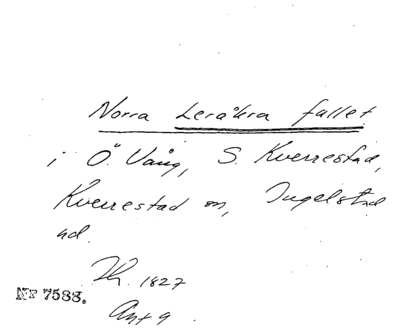 Norra Leråkra fallet
i Ö. Vång, S. Kverrestad,
Kverrestad sn, Ingelstad
hd.
Lh. 1827
Akt 9
Nr 7583.